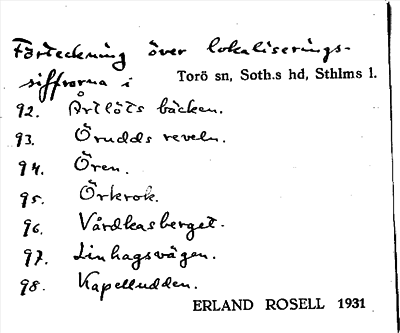 Förteckning över lokaliserings-
siffrorna i Torö sn, Soth.s hd, Sthlms l.
92. Årtlöts bäcken.
93. Örudds reveln.
94. Ören.
95. Örkrok.
96. Vårdkasberget.
97. Linhagsvägen.
98. Kapelludden.
ERLAND ROSELL 1931